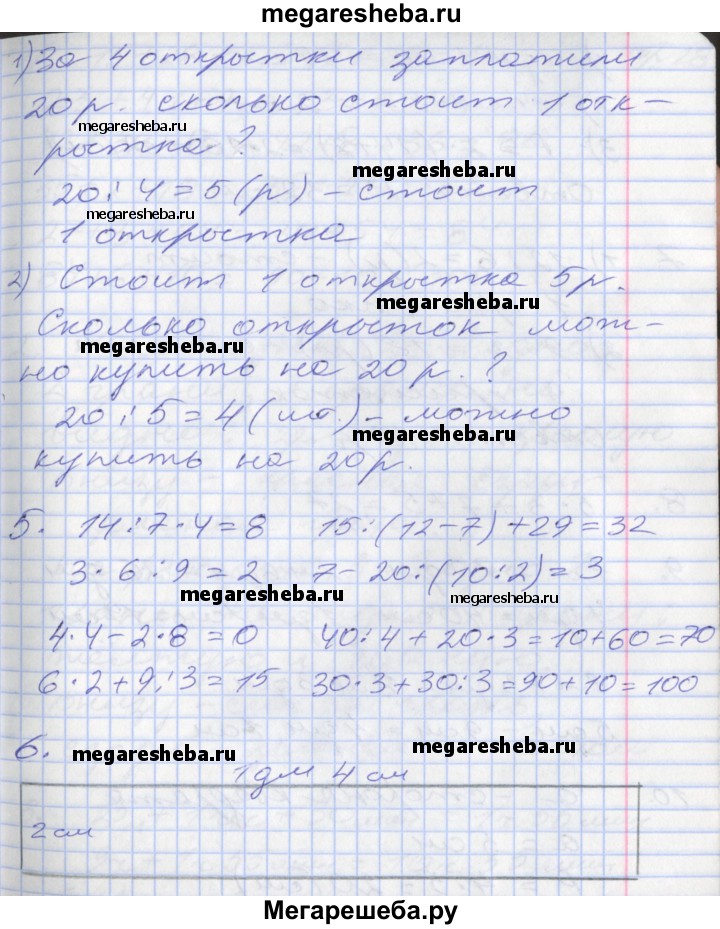 megaresheba.ru
1) За 4 открытки заплатили
20 р. сколько стоит 1 отк-
megaresheba.ru
рытка?
megaresheba.ru
20 : 4 = 5 (р) - стоит
megaresheba.ru
1 открытка
2) Стоит 1 открытка 5 р.
megaresheba.ru
Сколько открыток мож-
megaresheba.ru
но купить на 20 р.?
20 : 5 = 4 (шт.) - можно
megaresheba.ru
купить на 20 р.
5. 14 : 7 · 4 = 8 15 : (12 - 7) + 29 = 32
3 · 6 : 9 = 2 7 - 20 : (10 : 2) = 3
megaresheba.ru megaresheba.ru
4 · 4 - 2 · 8 = 0 40 : 4 + 20 · 3 = 10 + 60 = 70
6 · 2 + 9 : 3 = 15 30 · 3 + 30 : 3 = 90 + 10 = 100
6.
megaresheba.ru megaresheba.ru
1 дм 4 см
2 см
Мегарешеба.ру